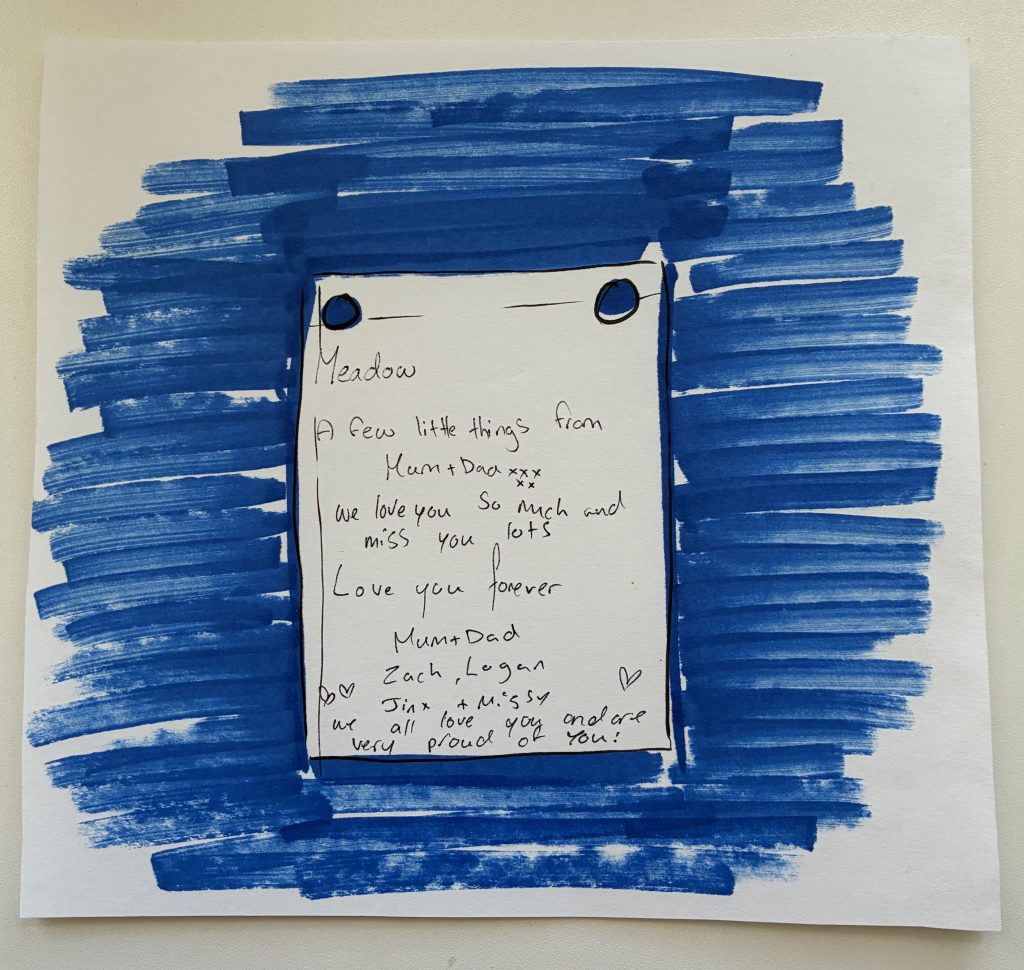 Meadow
A few little things from
Mum + Dad xxx
xx
we love you so much and
miss you lots
Love you forever
Mum + Dad
Zach, Logan
Jinx + Missy
we all love you and are
very proud of you!